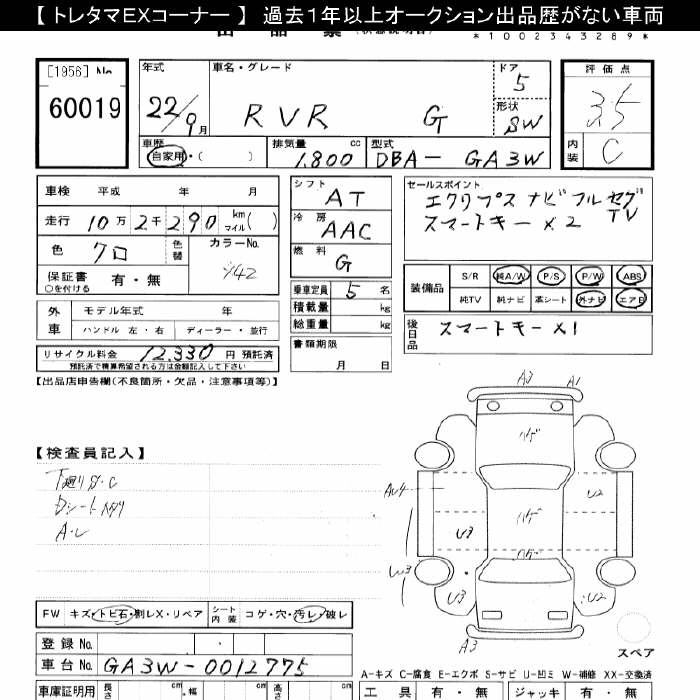 【 トレタマEXコーナー 】 過去1年以上オークション出品歴がない車両
*10023432289*
[1956] No
60019
年式 22/9月
車名・グレード RVR G
ドア 5
形状 SW
評価点 3.5
内装 C
車歴 自家用・( )
排気量 1,800 cc
型式 DBA- GA3W
車検 平成 年 月
走行 10万2千290 km マイル( )
色 クロ 色替 カラーNo. X42
保証書 有・無
○を付ける
シフト AT
冷房 AAC
燃料 G
乗車定員 5名
積載量 kg
総重量 kg
書類期限
月 日
セールスポイント
エクリプス ナビ フルセグTV
スマートキー×2
装備品 S/R 純A/W P/S P/W ABS
純TV 純ナビ 革シート 外ナビ エアB
後日品 スマートキー×1
外車 モデル年式 年
ハンドル 左・右 ディーラー・並行
リサイクル料金 12,330 円 預託済
預託済で精算希望される方は金額記入して下さい
【出品店申告欄(不良箇所・欠品・注意事項等)】
【検査員記入】
下廻りS・C
A3 A1
U2
U3
W3
U3 U2
A3
スペア
FW キズ・トビ石・割レX・リペア シート内装 コゲ・穴・汚レ・破レ
登録No.
車台No. GA3W-0012775
A-キズ C-腐食 E-エクボ S-サビ U-凹ミ W-補修 XX-交換済
車庫証明用 長さ cm 幅 cm 高さ cm
工具 有・無 ジャッキ 有・無